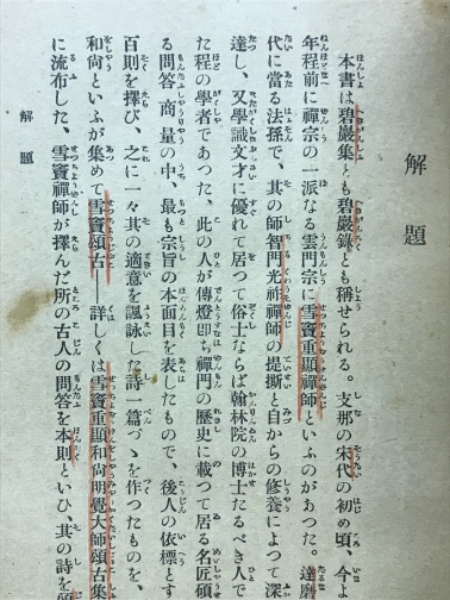 解題
本書は碧巖集とも碧巖錄とも稱せられる。支那の宋代の初め頃、今よ
年程前に禪宗の一派なる雲門宗に雪竇重顯禪師といふのがあつた。達磨
代に當る法孫で、其の師智門光祚禪師の提撕と自からの修養によつて深
達し、又學識文才に優れて居つて俗士ならば翰林院の博士たるべき人で
た程の學者であつた、此の人が傳燈即ち禪門の歷史に載つて居る名匠碩
る問答商量の中、最も宗旨の本面目を表したもので、後人の依標とす
百則を擇び、之に一々其の適意を諷詠した詩一篇づゝを作つたものを、
和尙といふが集めて雪竇頌古――詳しくは雪竇重顯和尙明覺大師頌古集
に流布した、雪竇禪師が擇んだ所の古人の問答を本則といひ、其の詩を頌
解題